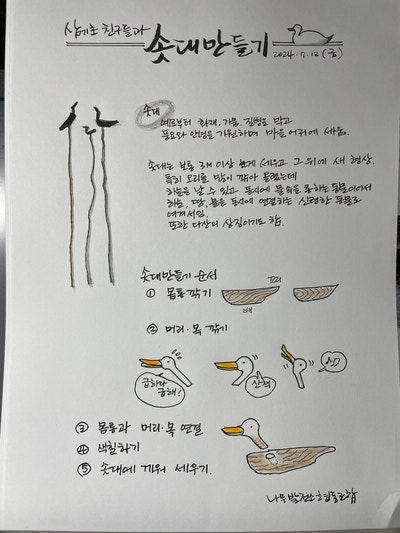 삼기초 친구들과
솟대만들기
2024.7.12 (금)
솟대
예로부터 화재, 가뭄, 질병을 막고
풍요와 안녕을 기원하며 마을 어귀에 세움.
솟대는 보통 3M 이상 높게 세우고 그 위에 새 형상.
특히 오리를 많이 깎아 올렸는데
하늘을 날 수 있고 동시에 물속을 통하는 동물이어서
하늘, 땅, 물을 동시에 연결하는 신령한 동물로
여겨서임.
또한 다산의 상징이기도 함.
솟대만들기 순서
① 몸통깎기
꼬리
배
② 머리·목 깎기
급하다
급해!
산책
③ 몸통과 머리·목 연결
④ 색칠하기
⑤ 솟대에 끼워 세우기.
나무발전소협동조합